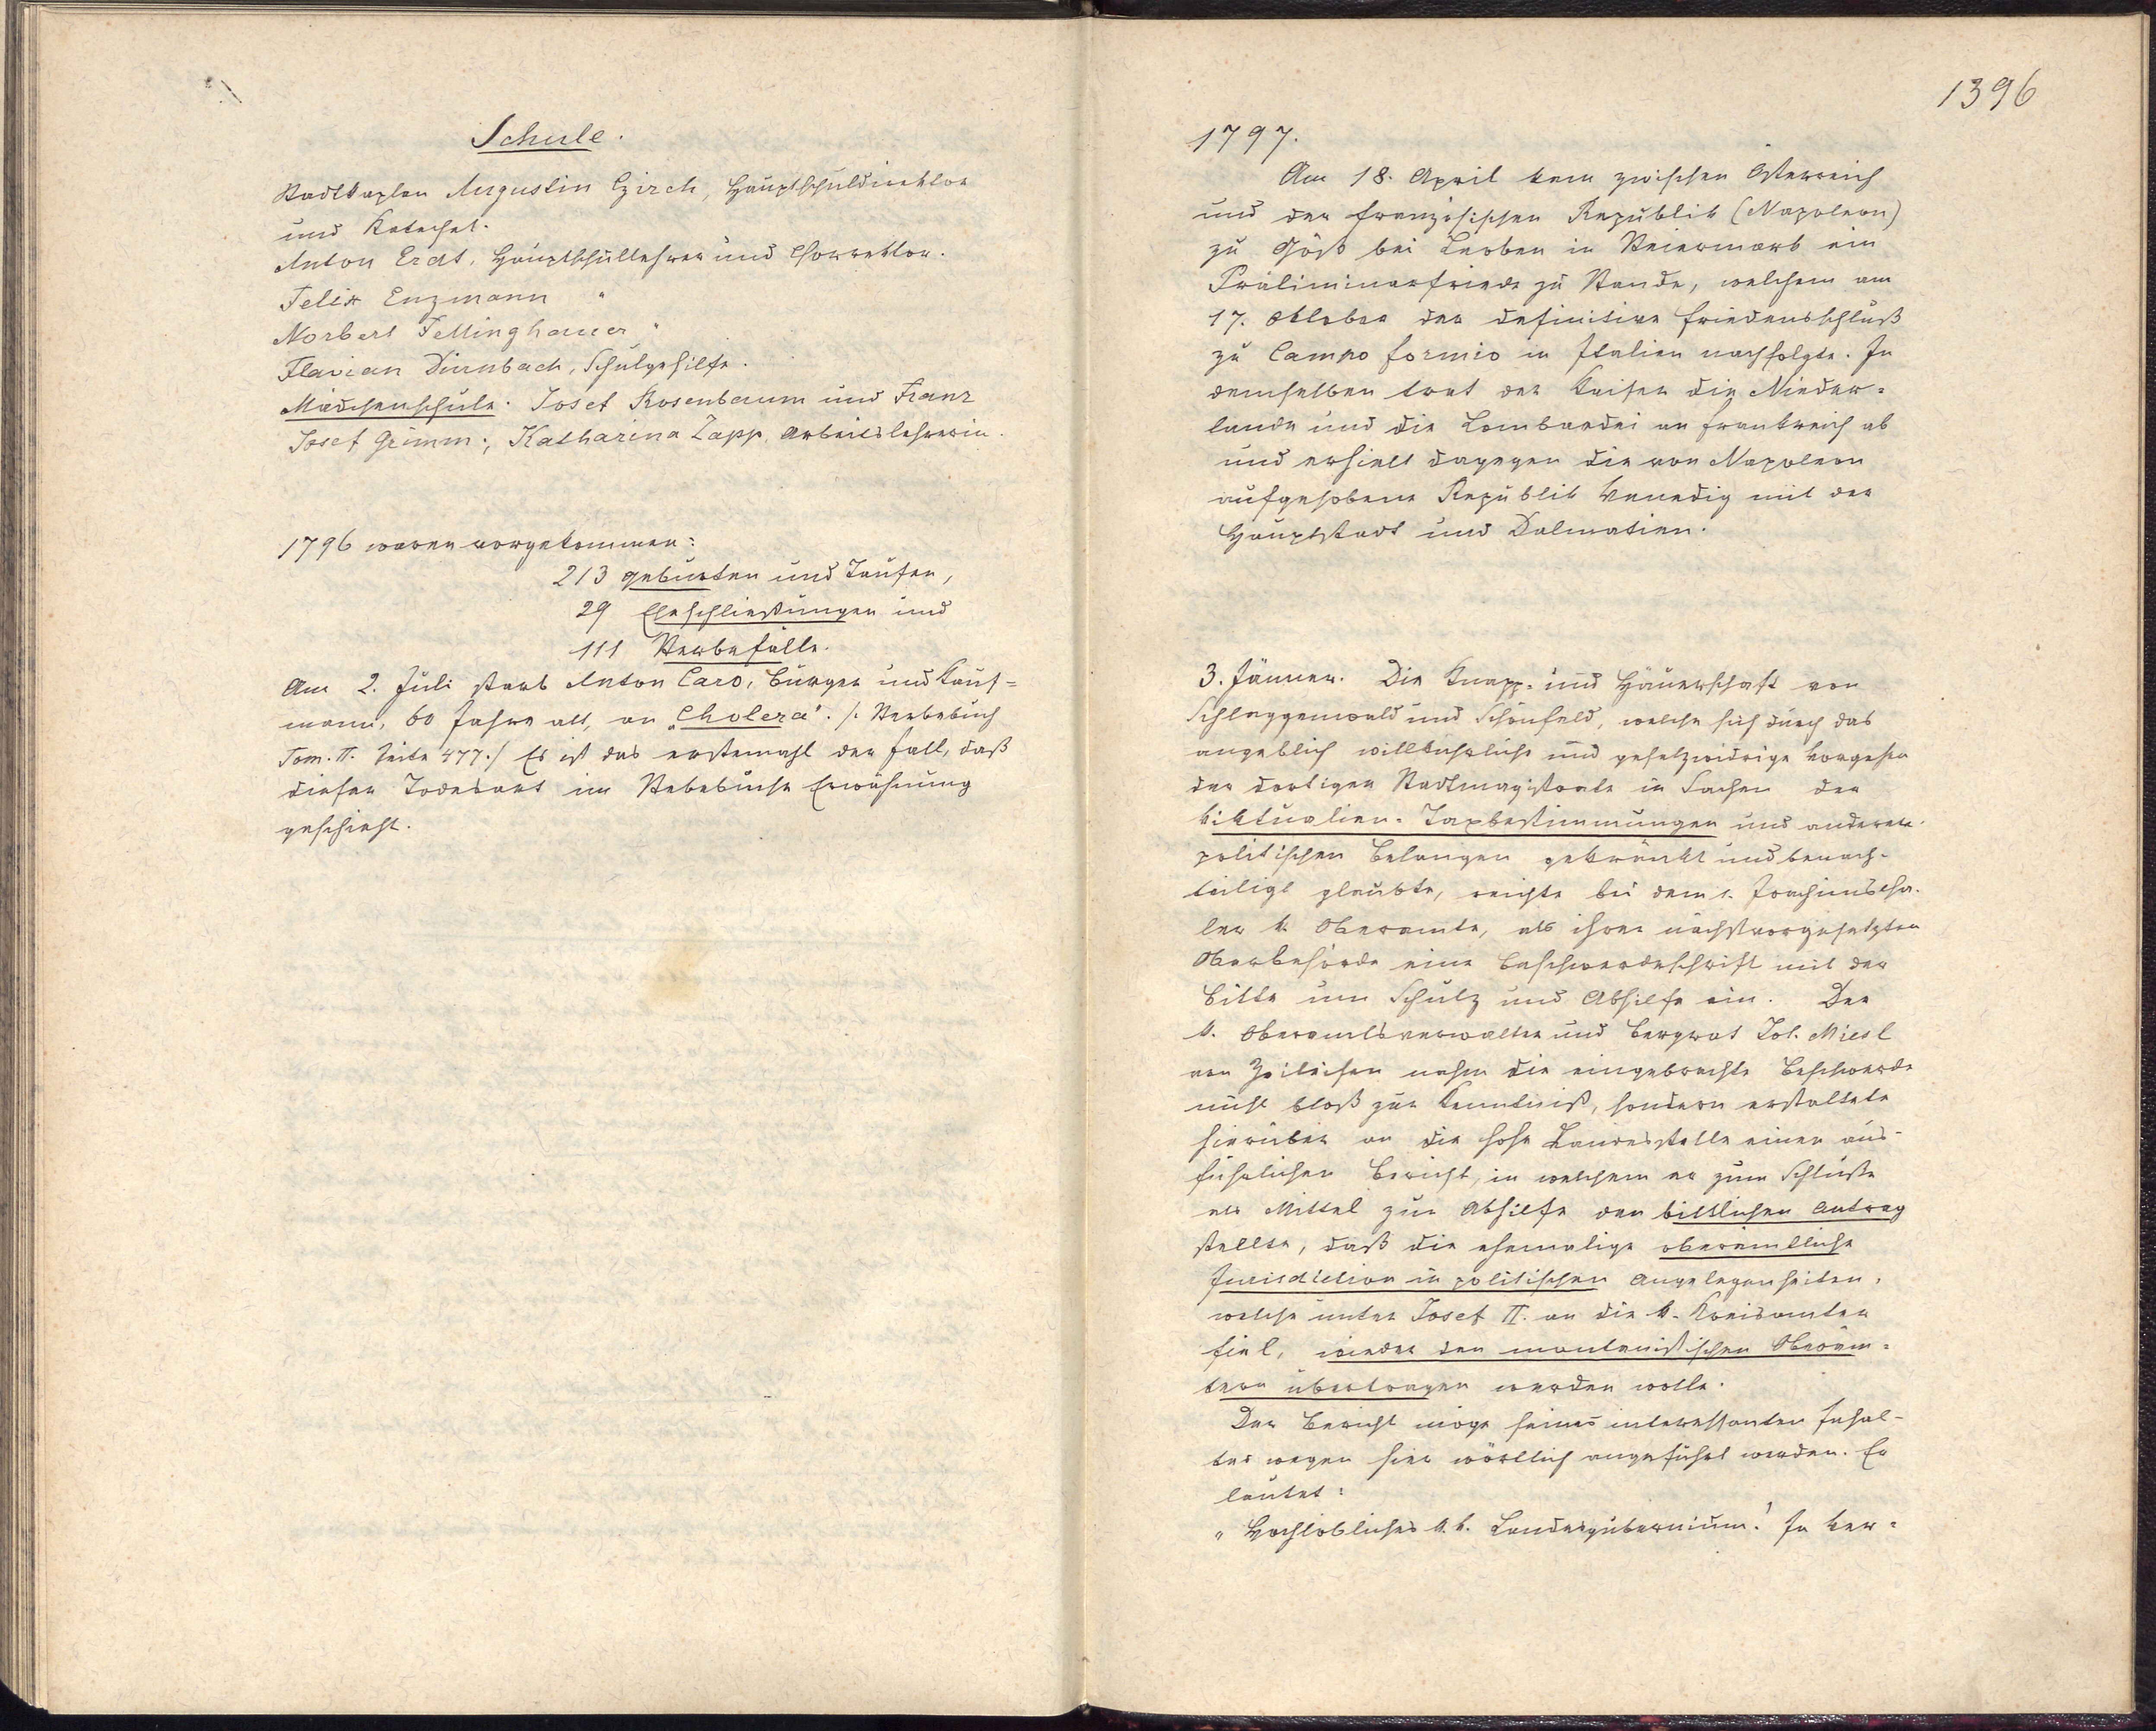 Schule.
Stadtkaplan Augustin Czirch, Hauptschuldirektor
und Katechet.
Anton Erdt, Hauptschullehrer und Chorrektor.
Felix Enzmann "
Norbert Fellinghauer "
Flavian Dürnbach, Schulgehilfe.
Mädchenschule. Josef Rosenbaum und Franz
Josef Grimm.; Katharina Zapp, Arbeitslehrerin.
1796 waren vorgekommen:
213 Geburten und Taufen,
29 Eheschließungen und
111 Sterbefälle.
Am 2. Juli starb Anton Caro, Bürger und Kauf=
mann, 60 Jahre alt, an „Cholera". /: Sterbebuch
Tom. II. Seite 477./ Es ist das erstemahl der Fall, daß
dieser Todesart im Stebebuche Erwähnung
geschieht.
1396
1797.
Am 18. April kam zwischen Österreich
und der französischen Republik (Napoleon)
zu Göß bei Leoben in Steiermark ein
Präliminarfriede zu Stande, welchem am
17. Oktober der definitive Friedensschluß
zu Campo formio in Italien nachfolgte. In
demselben trat der Kaiser die Nieder=
lande und die Lombardei an Frankreich ab
und erhielt dagegen die von Napoleon
aufgehobene Republik Venedig mit der
Hauptstadt und Dalmatien.
3. Jänner. Die Knapp- und Häuerschaft von
Schlaggenwald und Schönfeld, welche sich durch das
angeblich willkührliche und gesetzwidrige Vorgehen
der dortigen Stadtmagistrate in Sachen der
Viktualien-Taxbestimmungen und anderen
politischen Belangen gekränkt und benach-
teiligt glaubte, reichte bei dem s. Joachimstha-
ler k. Oberamte, als ihrer nächstvorgesetzten
Oberbehörde eine Beschwerdeschrift mit der
Bitte um Schutz und Abhilfe ein. Der
k. Oberamtsverwalter und Bergrat Jos. Miesl
von Zeileisen nahm die eingebrachte Beschwerde
nicht bloß zur Kenntniß, sondern erstattete
hierüber an die hohe Landesstelle einen aus-
führlichen Bericht, in welchem er zum Schluße
als Mittel zur Abhilfe den bittlichen Antrag
stellte, daß die ehemalige oberämtliche
Jurisdiktion in politischen Angelegenheiten,
welche unter Josef II. an die k. Kreisämter
fiel, wieder den montanistischen Oberäm=
tern übertragen werden wolle.
Der Bericht möge seines interessanten Inhal-
tes wegen hier wörtlich angeführt werden. Er
lautet:
„ Hochlöbliches k.k. Landesgubernium! In Ver=